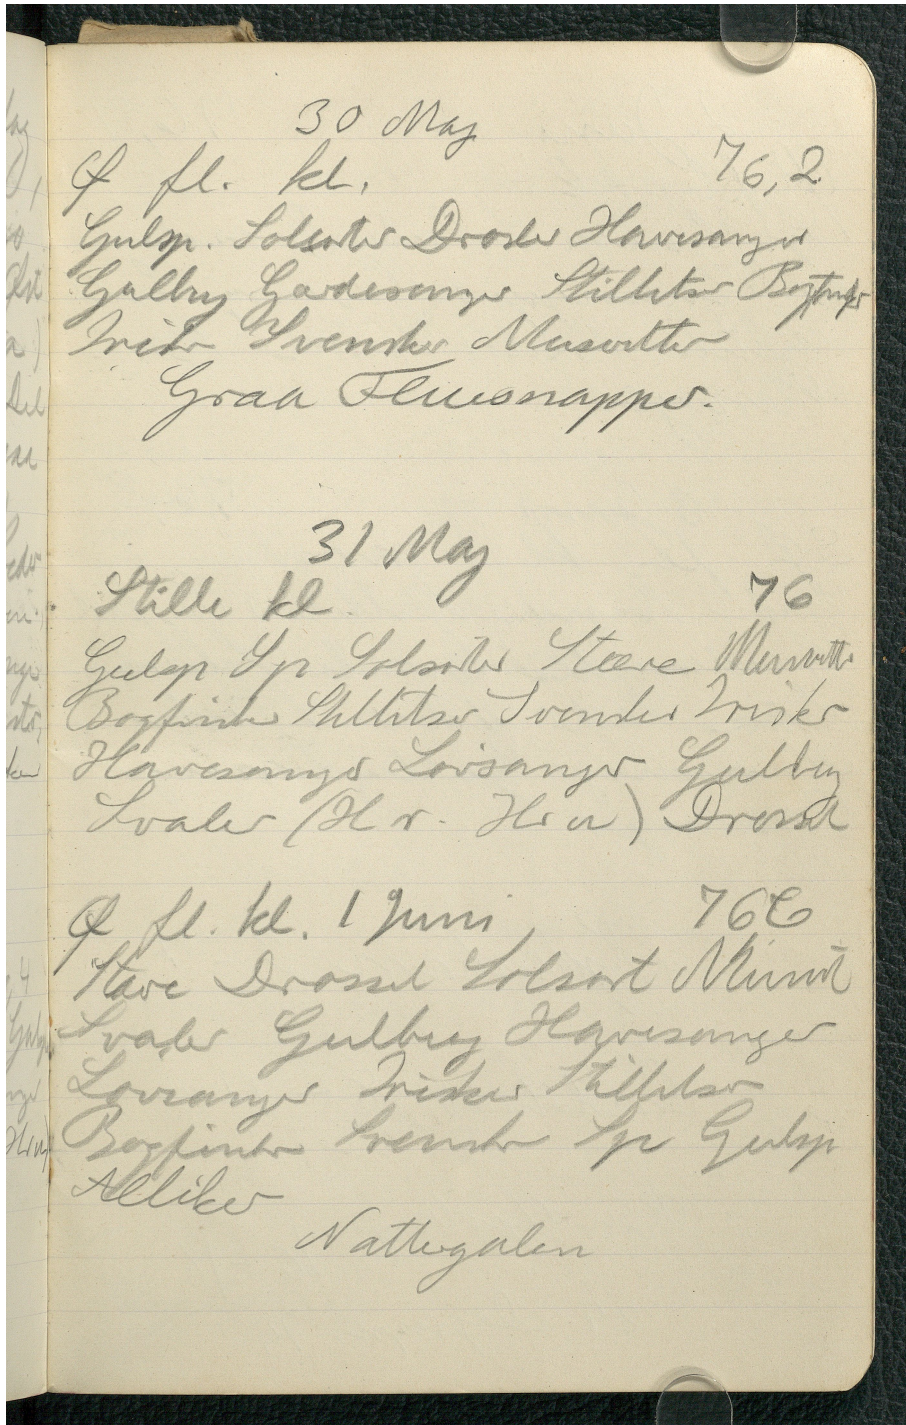 30 Maj
Ø fl. kl. 76,2
Gulsp. Solsorter Drosler Havesanger
Gulbug Gærdesanger Stillitser Bogfinker
Irisker Svensker Musvitter
Graa Fluesnapper.
31 Maj
Stille kl. 76
Gulsp Sp Solsorter Stære Musvitter
Bogfinker Stillitser Svensker Irisker
Havesanger Løvsanger Gulbug
Svaler (H r. Hi u) Drossel
Ø fl. kl. 1 Juni 76
Stære Drossel Solsort Musvit
Svaler Gulbug Havesanger
Løvsanger Irisker Stillitser
Bogfinker Svensker Sp Gulsp
Alliker
Nattergalen